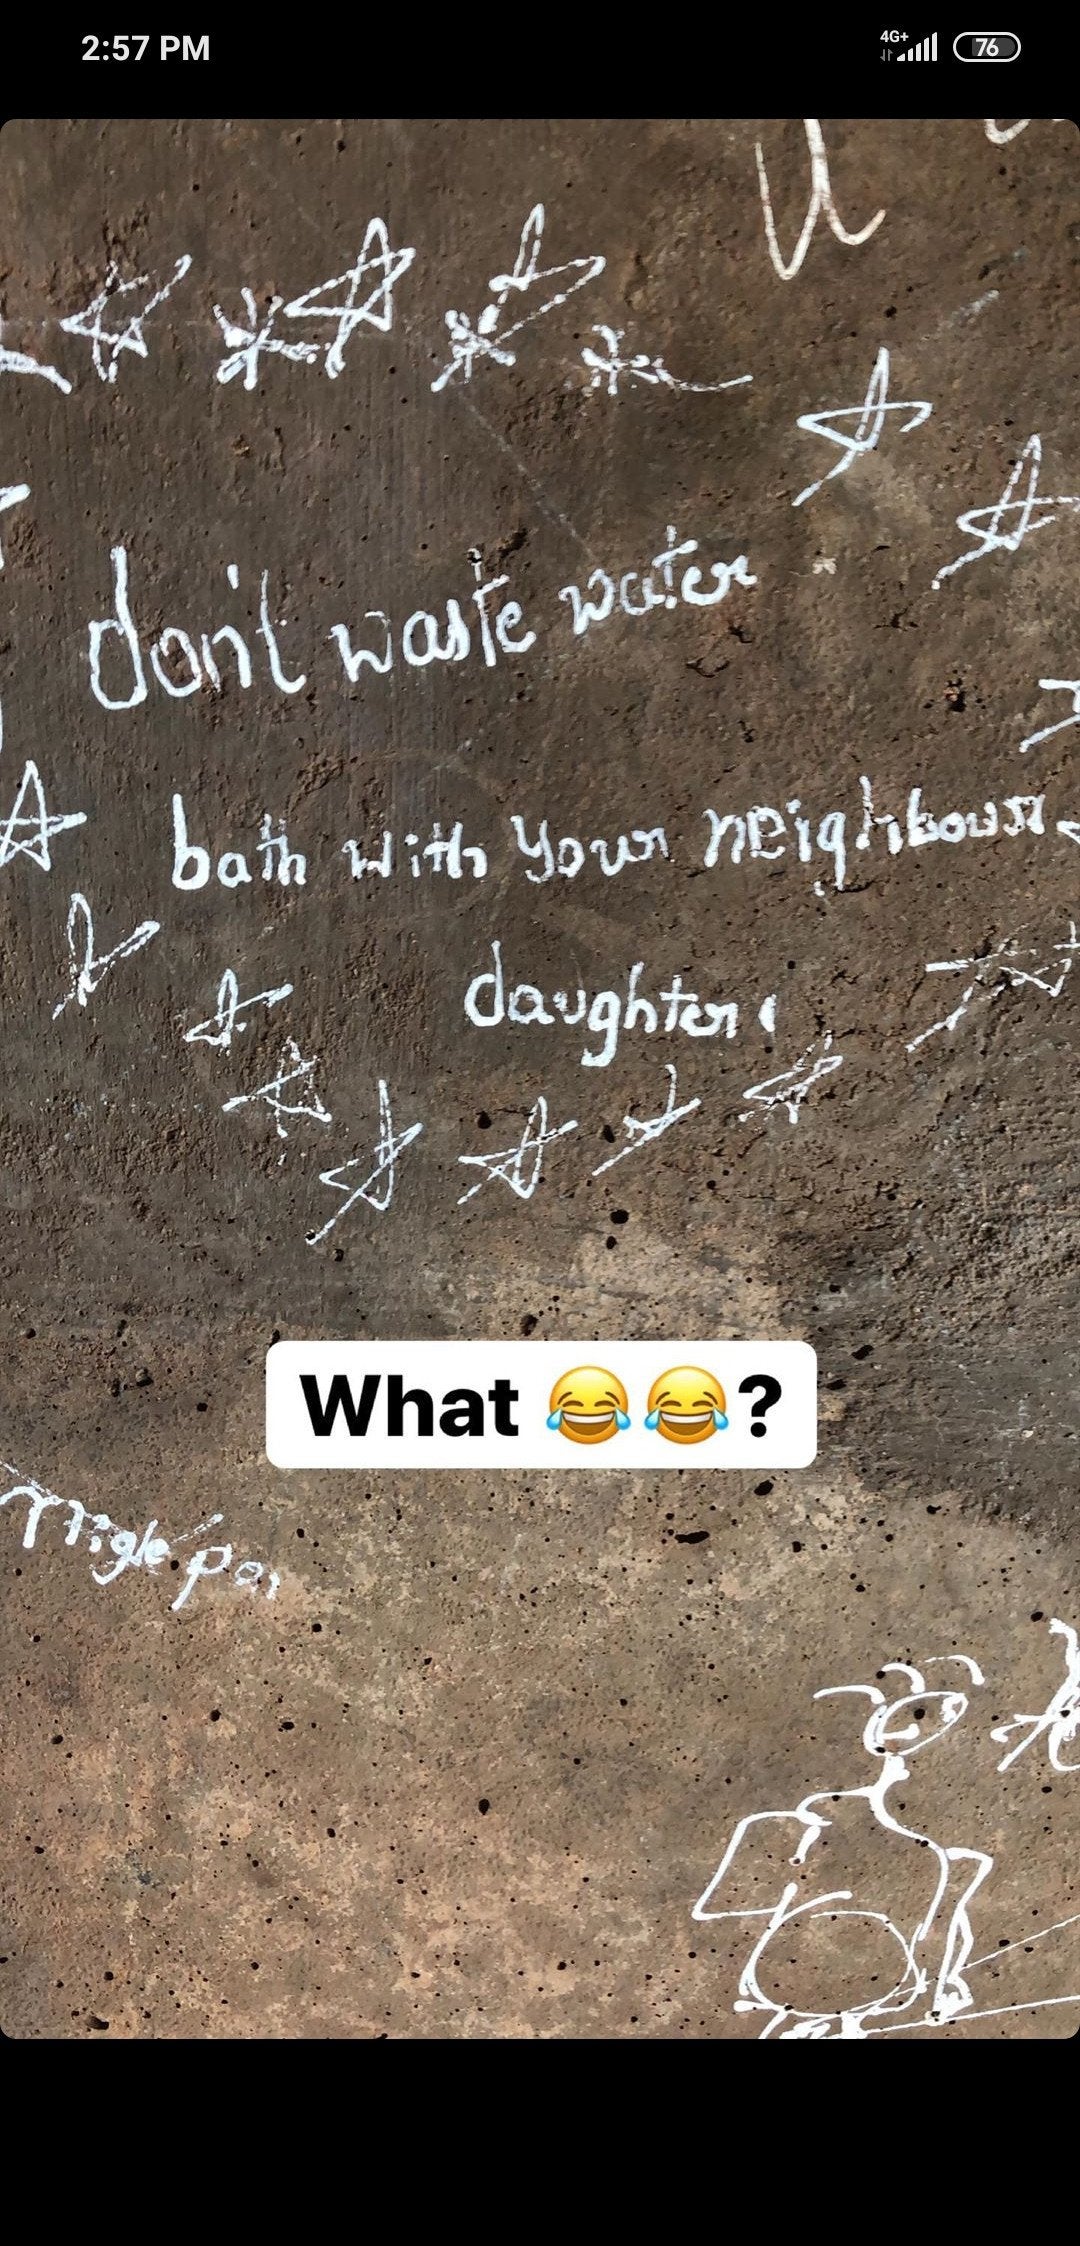 2:57 PM
4G+
76
don't waste water
bath with your neighbours
daughter
What 😂😂?